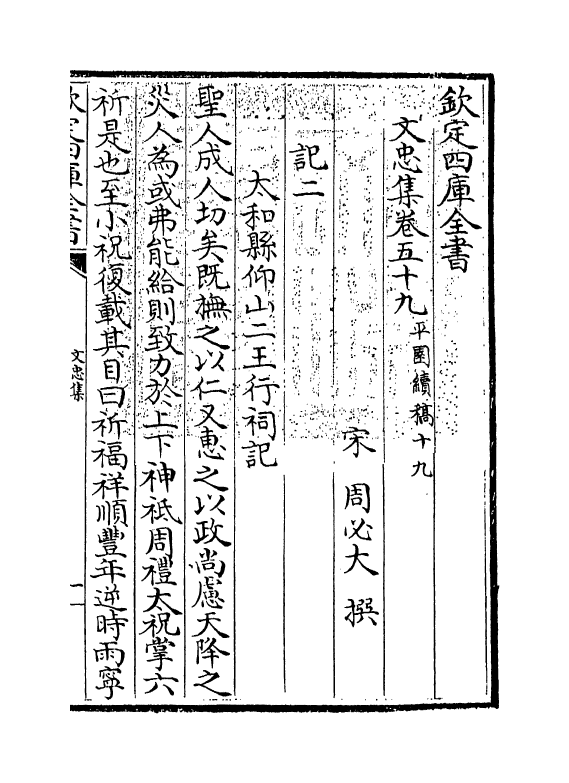 欽定四庫全書
文忠集卷五十九平園續稿十九
宋周必大撰
記二
太和縣仰山二王行祠記
聖人成人切矣既撫之以仁又惠之以政尚慮天降之
災人為或弗能給則致力於上下神祇周禮太祝掌六
祈是也至小祝復載其目曰祈福祥順豐年逆時雨寧
欽定四庫全書
文忠集
一